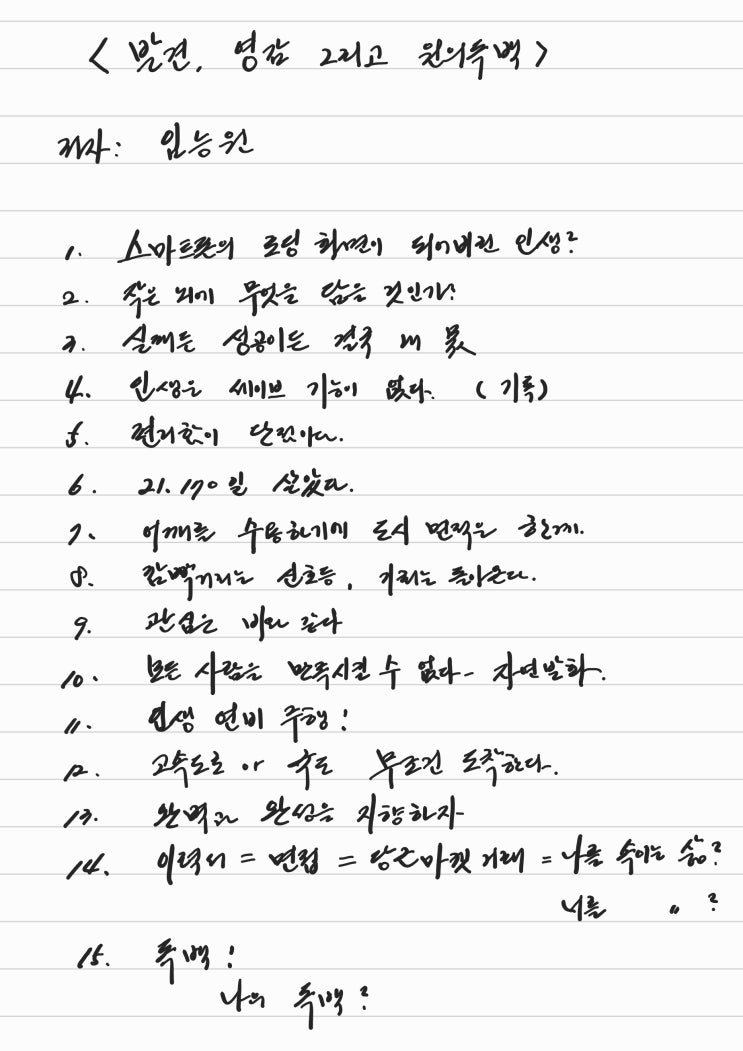 < 발견, 영감 그리고 원의독백 >
저자: 임승원
1. 스마트폰의 로딩 화면이 되어버린 인생?
2. 작은 뇌에 무엇을 담을 것인가?
3. 실패든 성공이든 결국 내 몫
4. 인생은 세이브 기능이 없다. (기록)
5. 편리함이 단점이다.
6. 21.170일 살았다.
7. 어깨를 수용하기에 도시 면적은 한계.
8. 깜빡거리는 신호등, 차례는 돌아온다.
9. 관심은 비와 같다
10. 모든 사람을 만족시킬 수 없다- 자연발화.
11. 인생 연비 주행!
12. 고속도로 or 국도 무조건 도착한다.
13. 완벽과 완성을 지향하자-
14. 이력서 = 면접 = 당근마켓 거래 = 나를 속이는 삶?
너를 〃 ?
15. 독백!
나의 독백?